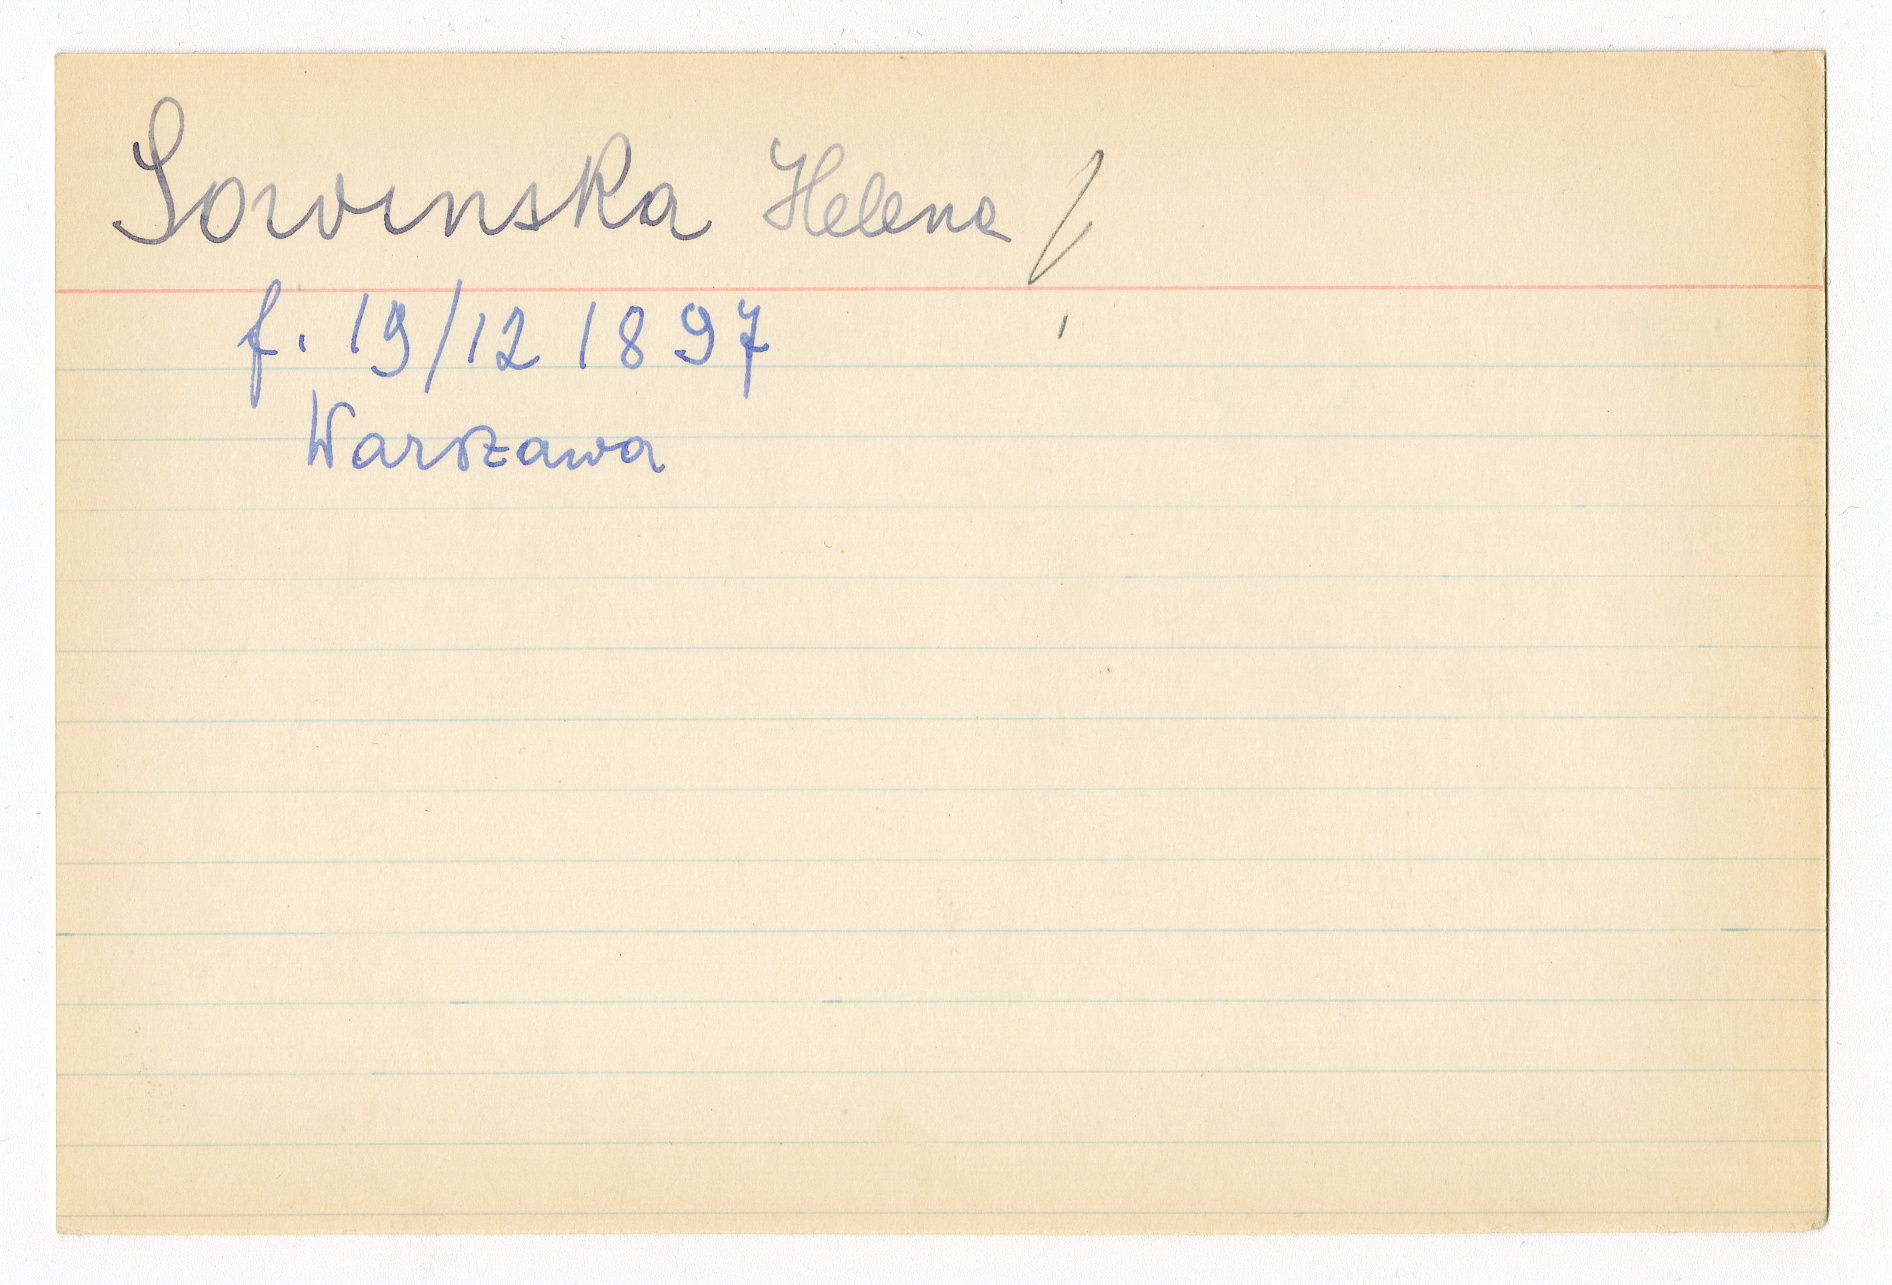 Sowinska Helena
f. 19/12 1897
Warszawa